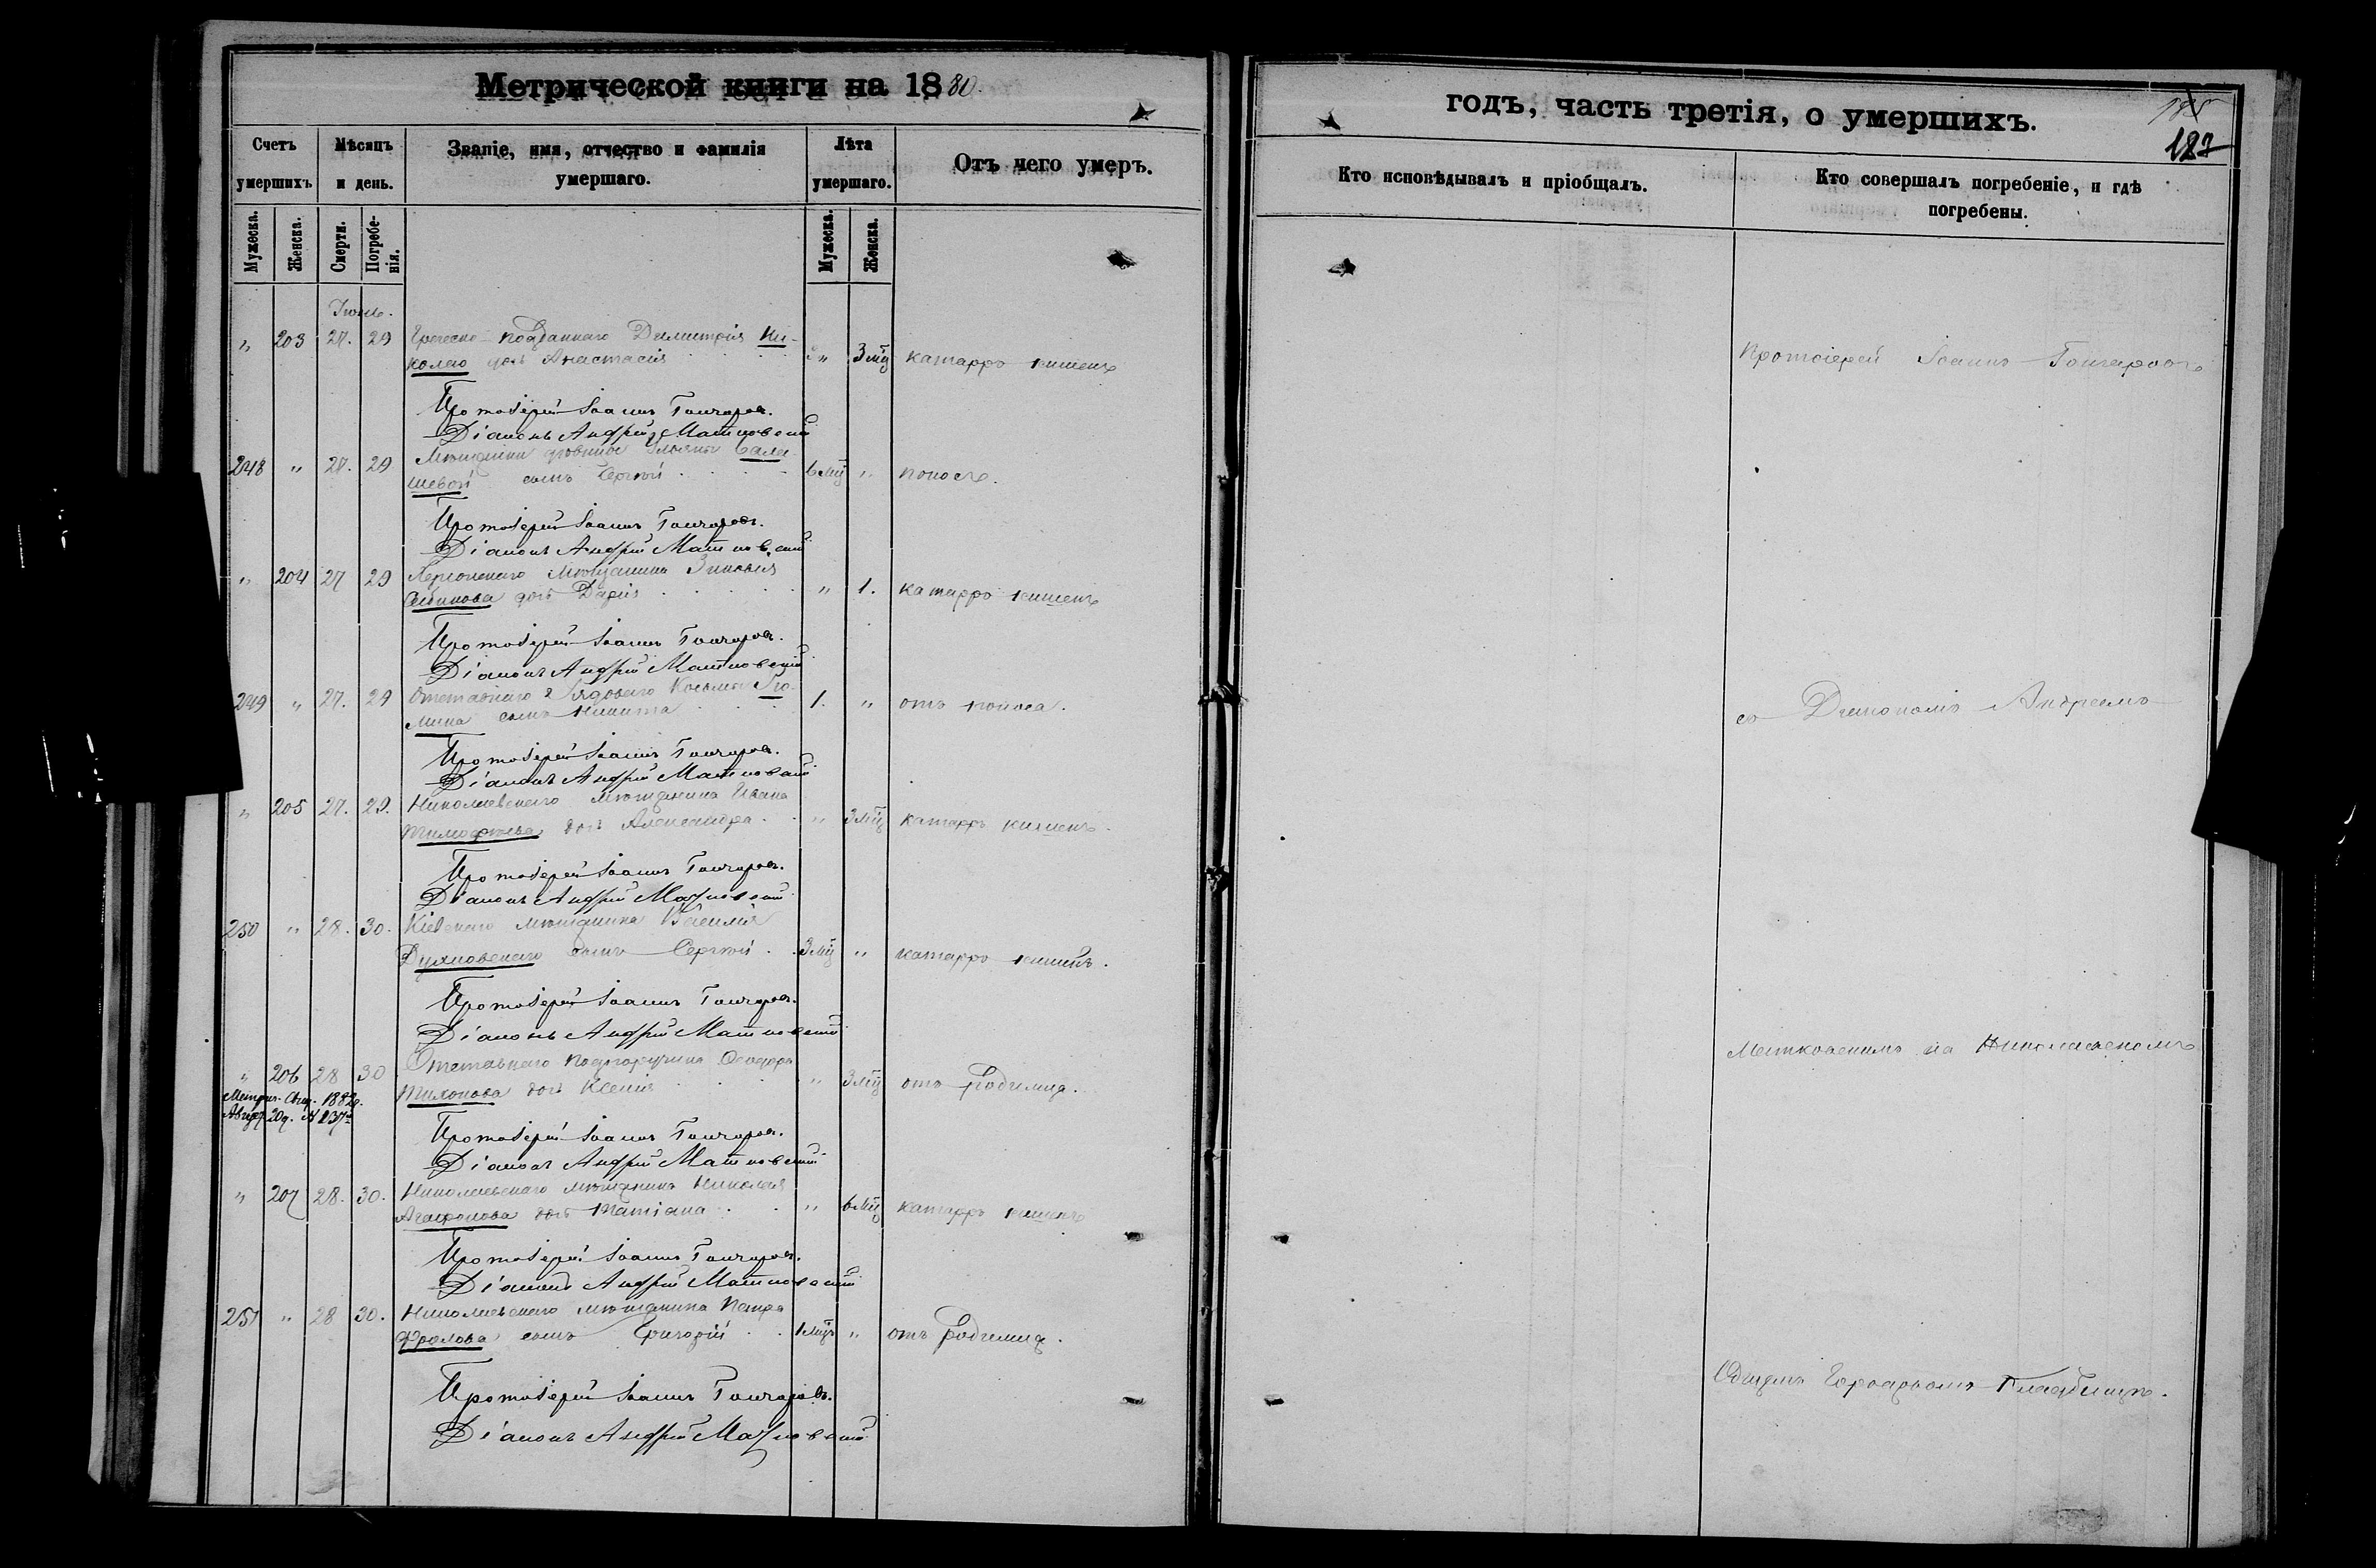 Метрической книги на 1880.
годъ, часть третія, о умершихъ.
185
187
Счетъ умершихъ
Мѣсяцъ и день.
Званіе, имя, отчество и фамилія умершаго.
Лѣта умершаго.
Отъ чего умеръ.
Кто исповѣдывалъ и пріобщалъ.
Кто совершалъ погребеніе, и гдѣ погребены.
Мужеска.
Женска.
Смерти.
Погребенія.
Мужеска.
Женска.
" 203 27. 29 Греческо-подданнаго Димитрія Ни-
колао дочь Анастасія " 3 мц катарръ кишекъ
Протоіерей Іоаннъ Гончаровъ
Протоіерей Іоаннъ Гончаровъ.
Діаконъ Андрей Матковскій
248 " 27. 29 Мѣщанки
шевой сынъ Сергѣй 6 мц " поносъ.
Протоіерей Іоаннъ Гончаровъ.
Діаконъ Андрей Матковскій
" 204 27 29 Херсонскаго мѣщанина Зиновія
дочь Дарія " 1. катарръ кишекъ
Протоіерей Іоаннъ Гончаровъ.
Діаконъ Андрей Матковскій
249 " 27. 29 Отставнаго Рядоваго Космы
мина сынъ Никита 1. " отъ поноса.
съ Діакономъ Андреемъ
Протоіерей Іоаннъ Гончаровъ.
Діаконъ Андрей Матковскій
" 205 27. 29. Николаевскаго мѣщанина Ивана
Тимофѣева дочь Александра " 3 мц катарръ кишекъ.
Протоіерей Іоаннъ Гончаровъ.
Діаконъ Андрей Матковскій
250 " 28. 30. Кіевскаго мѣщанина Василія
сынъ Сергѣй 3 мц " катарръ кишекъ.
Протоіерей Іоаннъ Гончаровъ.
Діаконъ Андрей Матковскій
Матковскимъ на Николаевскомъ
" 206 28 30 Отставнаго
Тихонова дочь Ксенія " 3 мц отъ родимца.
Метрич. Свид. 1882г.
Август. 20д. № 237
Протоіерей Іоаннъ Гончаровъ.
Діаконъ Андрей Матковскій
" 207 28. 30. Николаевскаго мѣщанина Николая
Агафонова дочь Татіана " 6 мц катарръ кишекъ
Протоіерей Іоаннъ Гончаровъ.
Діаконъ Андрей Матковскій
251 " 28 30. Николаевскаго мѣщанина Петра
Фролова сынъ Григорій 1 мцъ " отъ родимца.
Общемъ Городскомъ Кладбищѣ.
Протоіерей Іоаннъ Гончаровъ.
Діаконъ Андрей Матковскій